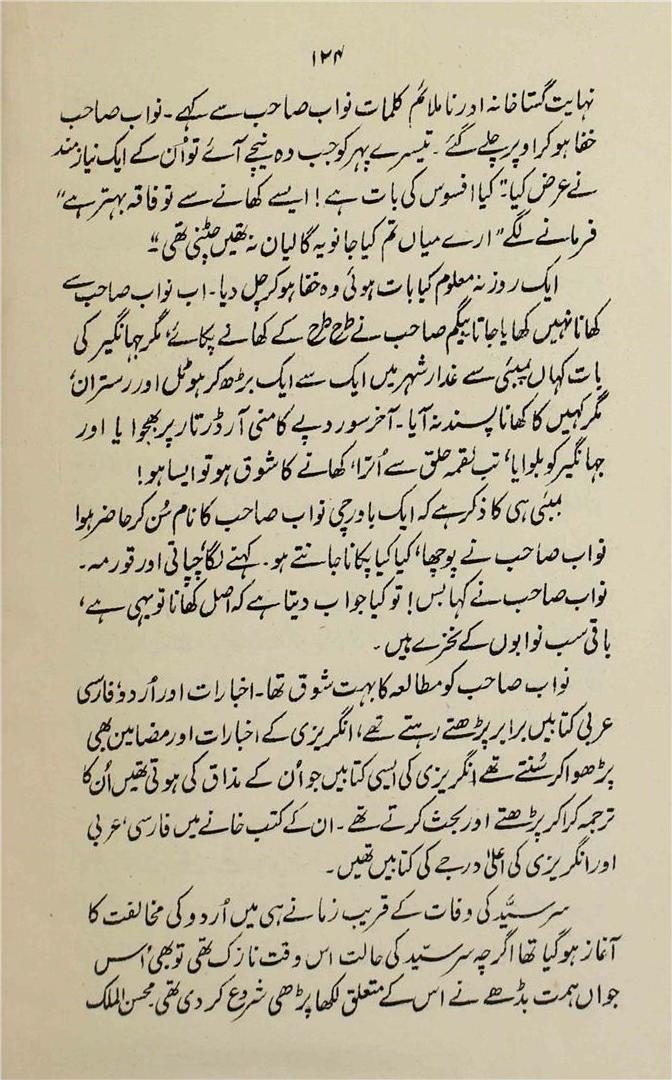 ۱۲۴
نہایت گستاخانہ اور ناملائم کلمات نواب صاحب سے کہے۔ نواب صاحب
خفا ہو کر اوپر چلے گئے۔ تیسرے پہر کو جب وہ نیچے آئے تو اُن کے ایک نیاز مند
نے عرض کیا۔ "کیا افسوس کی بات ہے! ایسے کھانے سے تو فاقہ بہتر ہے"
فرمانے لگے "ارے میاں تم کیا جانو یہ گالیاں نہ تھیں چٹنی تھی"
ایک روز نہ معلوم کیا بات ہوئی وہ خفا ہو کر چل دیا۔ اب نواب صاحب سے
کھانا نہیں کھایا جاتا بیگم صاحب نے طرح طرح کے کھانے پکائے، مگر جہانگیر کی
بات کہاں بمبئی سے غدار شہر میں ایک سے ایک بڑھ کر ہوٹل اور رستران،
مگر کہیں کا کھانا پسند نہ آیا۔ آخر سو روپے کا منی آرڈر تار پر بھجوایا اور
جہانگیر کو بلوایا، تب لقمہ حلق سے اُترا، کھانے کا شوق ہو تو ایسا ہو!
بمبئی ہی کا ذکر ہے کہ ایک باورچی نواب صاحب کا نام سُن کر حاضر ہوا
نواب صاحب نے پوچھا، کیا کیا پکانا جانتے ہو۔ کہنے لگا، چپاتی اور قورمہ۔
نواب صاحب نے کہا بس! تو کیا جواب دیتا ہے کہ اصل کھانا تو یہی ہے،
باقی سب نوابوں کے نخرے ہیں۔
نواب صاحب کو مطالعہ کا بہت شوق تھا۔ اخبارات اور اُردو، فارسی
عربی کتابیں برابر پڑھتے رہتے تھے، انگریزی کے اخبارات اور مضامین بھی
پڑھوا کر سُنتے تھے انگریزی کی ایسی کتابیں جو اُن کے مذاق کی ہوتی تھیں اُن کا
ترجمہ کرا کر پڑھتے اور بحث کرتے تھے۔ ان کے کتب خانے میں فارسی، عربی
اور انگریزی کی اعلیٰ درجے کی کتابیں تھیں۔
سر سیّد کی وفات کے قریب زمانے ہی میں اُردو کی مخالفت کا
آغاز ہو گیا تھا اگرچہ سر سیّد کی حالت اس وقت نازک تھی تو بھی اُس
جواں ہمت بڈھے نے اس کے متعلق لکھا پڑھی شروع کر دی تھی محسن الملک